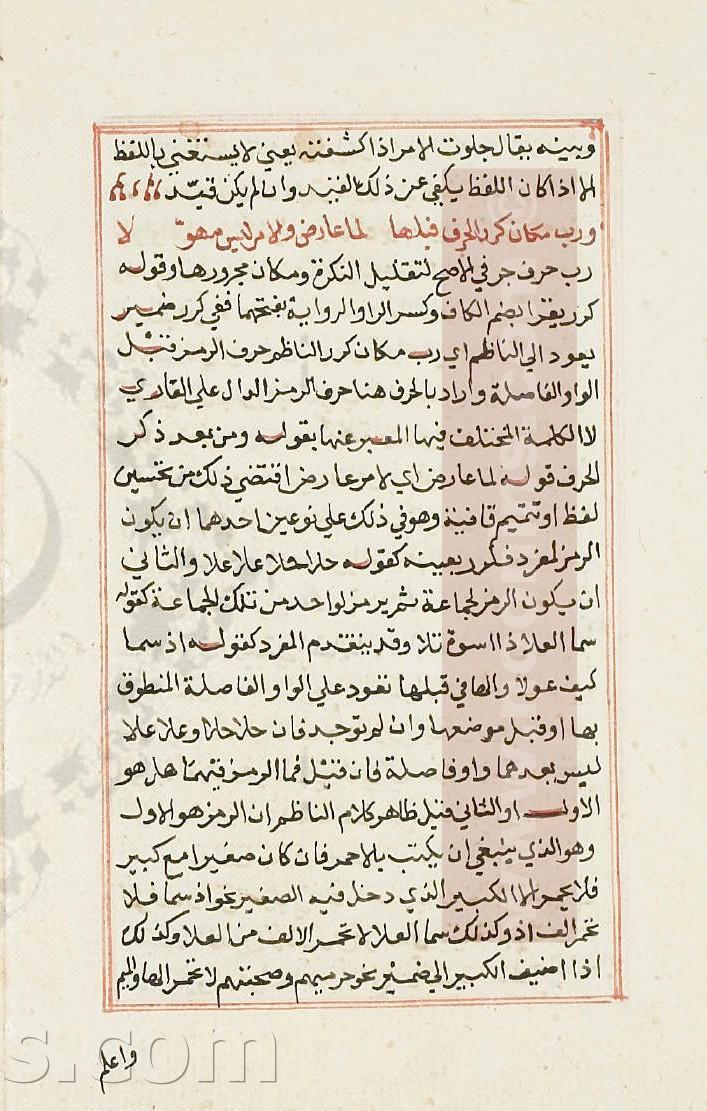 وبينه يقال جلوت الامر اذا كشفته يعني لا يستغني باللفظ
الا اذا كان اللفظ يكفي عن ذلك القيد وان لم يكن قيد
ورب مكان كرر الحرف قبلها لما عارض والامر ليس مهولا
رب حرف جر في الاصح لتقليل النكرة ومكان مجرورها وقوله
كرر يقرا بضم الكاف وكسر الرا والرواية بفتحهما ففي كرر ضمير
يعود الي الناظم اي رب مكان كرر الناظم حرف الرمز قبل
الواو الفاصلة واراد بالحرف هنا حرف الرمز الدال علي القاري
لا الكلمة المختلف فيها المعبر عنها بقوله ومن بعد ذكر
الحرف قوله لما عارض اي لامر عارض اقتضي ذلك من تحسين
لفظ او تتميم قافية وهو في ذلك علي نوعين احدهما ان يكون
الرمز لمفرد فكرر بعينه كقوله حلا حلا علا علا والثاني
ان يكون الرمز لجماعة ثم يرمز لواحد من تلك الجماعة كقوله
سما العلا ذا اسوة تلا وقد يتقدم المفرد كقوله اذ سما
كيف عولا والها في قبلها تعود علي الواو الفاصلة المنطوق
بها او قبل موضعها وان لم توجد فان حلا حلا وعلا علا
ليس بعدهما واو فاصلة فان قيل فما الرمز فيهما هل هو
الاول او الثاني قيل ظاهر كلام الناظم ان الرمز هو الاول
وهو الذي ينبغي ان يكتب بالاحمر فان كان صغيرا مع كبير
فلا يحمر الا الكبير الذي دخل فيه الصغير نحو اذ سما فلا
تحمر الف اذ وكذلك سما العلا لا تحمر الالف من العلا وكذلك
اذا اضيف الكبير الي ضمير نحو حرميهم وصحبتهم لا تحمر الها والميم
واعلم
s.com